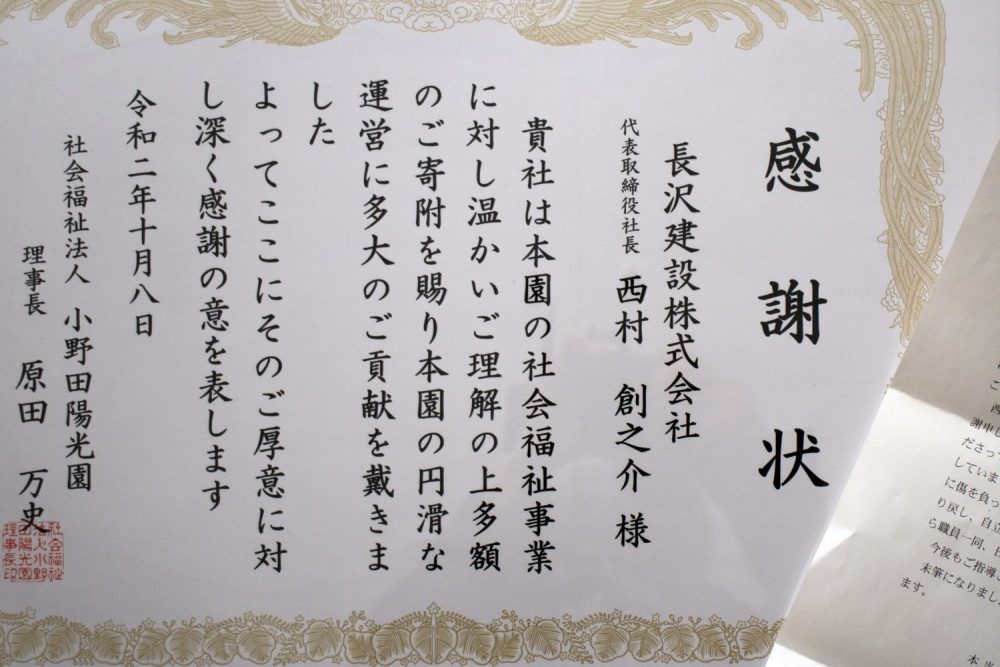 感謝状
長沢建設株式会社
代表取締役社長 西村 創之介 様
貴社は本園の社会福祉事業
に対し温かいご理解の上多額
のご寄附を賜り本園の円滑な
運営に多大のご貢献を戴きま
した
よってここにそのご厚意に対
し深く感謝の意を表します
令和二年十月八日
社会福祉法人 小野田陽光園
理事長 原田 万史
社会福祉
法人小野
田陽光園
理事長印
こ
西
謝申し
ださって
していま
に傷を負っ
り戻し、自立
ら職員一同、日
今後もご指導、
末筆になりまし
ます。
本